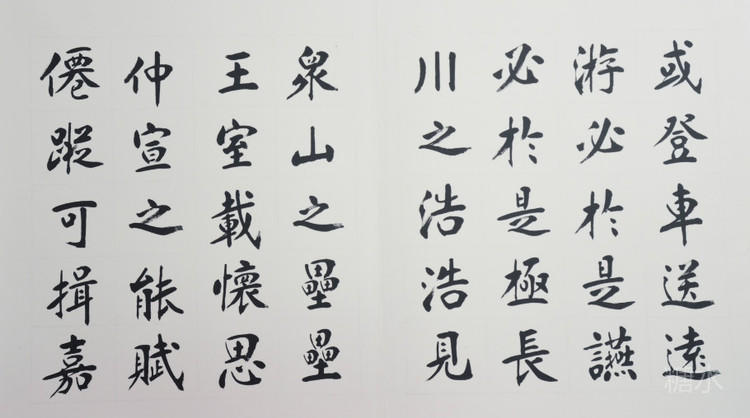 或登車送遠
游必於是讌
必於是極長
川之浩浩見
衆山之壘壘
王室載懷思
仲宣之能賦
僊蹤可揖嘉
糖水